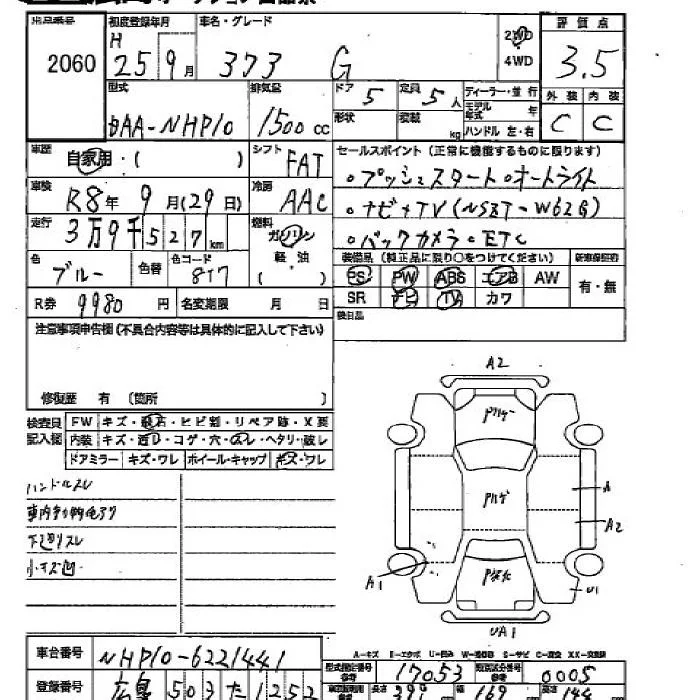 出品番号 初度登録年月 車名・グレード 評価点
2060 H 25年 9月 373 G 2WD 4WD 3.5
型式 排気量 ドア 定員 ディーラー・並行 外装 内装
DAA-NHP10 1500cc 5 5人 モデル年式 C C
形状 積載 kg ハンドル 左・右
車歴 自家用・( ) シフト FAT セールスポイント (正常に機能するものに限ります)
車検 R8年 9月(29日) 冷房 AAC
。プッシュスタート。オートライト
。ナビ+TV(NSZT-W62G)
。バックカメラ。ETC
走行 3万9千527km 燃料 ガソリン 軽・油 ( )
色 ブルー 色替 色コード 8T7
装備品 (純正品に限り○をつけてください) 新車保証書
PS PW ABS エアB AW 有・無
SR ナビ TV カワ
R券 9980円 名変期限 月 日
後日品
注意事項申告欄(不具合内容等は具体的に記入して下さい)
修復歴 有 (箇所 )
検査員記入欄 FW キズ・飛石・ヒビ割・リペア跡・X要
内装 キズ・コゲ・穴・スレ・ヘタリ・破レ
ドアミラー キズ・ワレ ホイール・キャップ キズ・ワレ
ハンドルスレ
下廻リスレ
小キズ凹
A2
A
A2
A1
U1
UA1
車台番号 NHP10-6221441
A-キズ
型式指定番号 17053 類別区分番号 0005
登録番号 広島 503 た 1252
長さ 399 幅 169 高さ 144